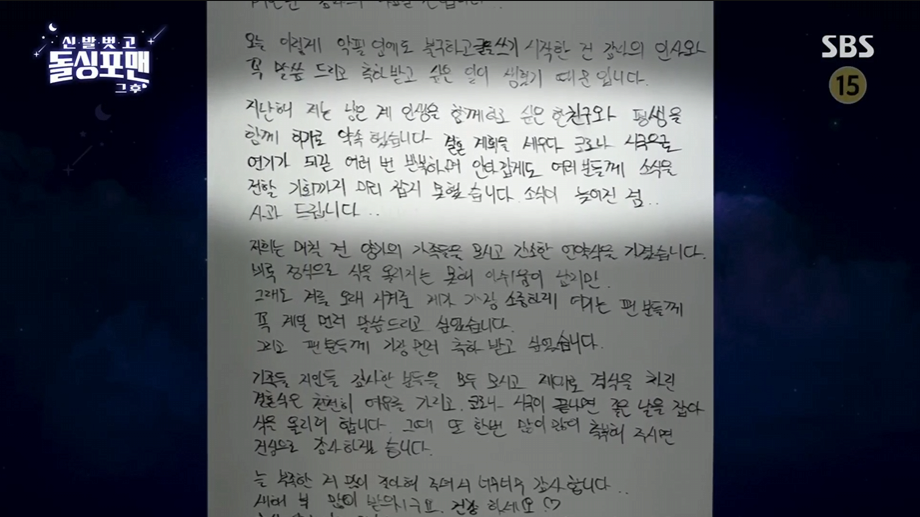 신발벗고
돌싱포맨
그후
SBS
15
오늘 이렇게 악필임에도 불구하고 글을 쓰기 시작한 건 감사의 인사와
꼭 말씀 드리고 축하받고 싶은 일이 생겼기 때문입니다.
지난해 저는 남은 제 인생을 함께하고 싶은 한 친구와 평생을
함께 하기로 약속 했습니다 결혼 계획을 세우다 코로나 시국으로
연기가 되길 여러 번 반복하며 안타깝게도 여러분들께 소식을
전할 기회까지 미리 잡지 못했습니다. 소식이 늦어진 점..
사과 드립니다...
저희는 며칠 전 양가의 가족들을 모시고 간소한 언약식을 가졌습니다.
비록 정식으로 식을 올리지는 못해 아쉬움이 남지만.
그래도 저를 오래 지켜준 제가 가장 소중하게 여기는 팬분들께
꼭 제일 먼저 말씀드리고 싶었습니다.
그리고 팬분들께 가장 먼저 축하 받고 싶었습니다.
가족들 지인들 감사한 분들을 모두 모시고 제대로 격식을 차린
결혼식은 천천히 여유를 가지고. 코로나 시국이 끝나면 좋은 날을 잡아
식을 올리려 합니다. 그때 또 한번 많이 많이 축복해 주시면
진심으로 감사하겠습니다.
늘 부족한 저 많이 좋아해 주셔서 너무너무 감사합니다..
새해 복 많이 받으시구요. 건강 하세요♡